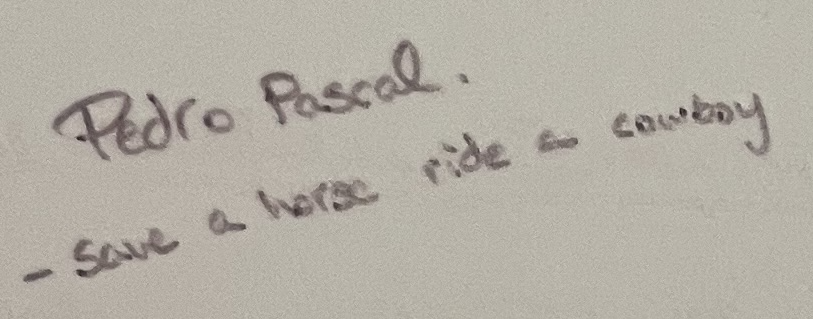 Pedro Pascal.
- save a horse ride a cowboy